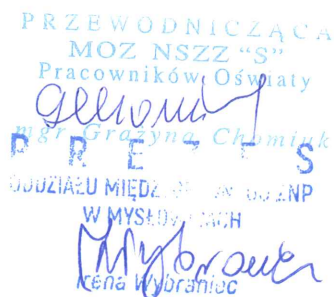 PRZEWODNICZĄCA
MOZ NSZZ "S"
Pracowników Oświaty
mgr Grażyna Chomiuk
PREZES
ODDZIAŁU ZNP
W MYSŁOWICACH
Irena Wybraniec